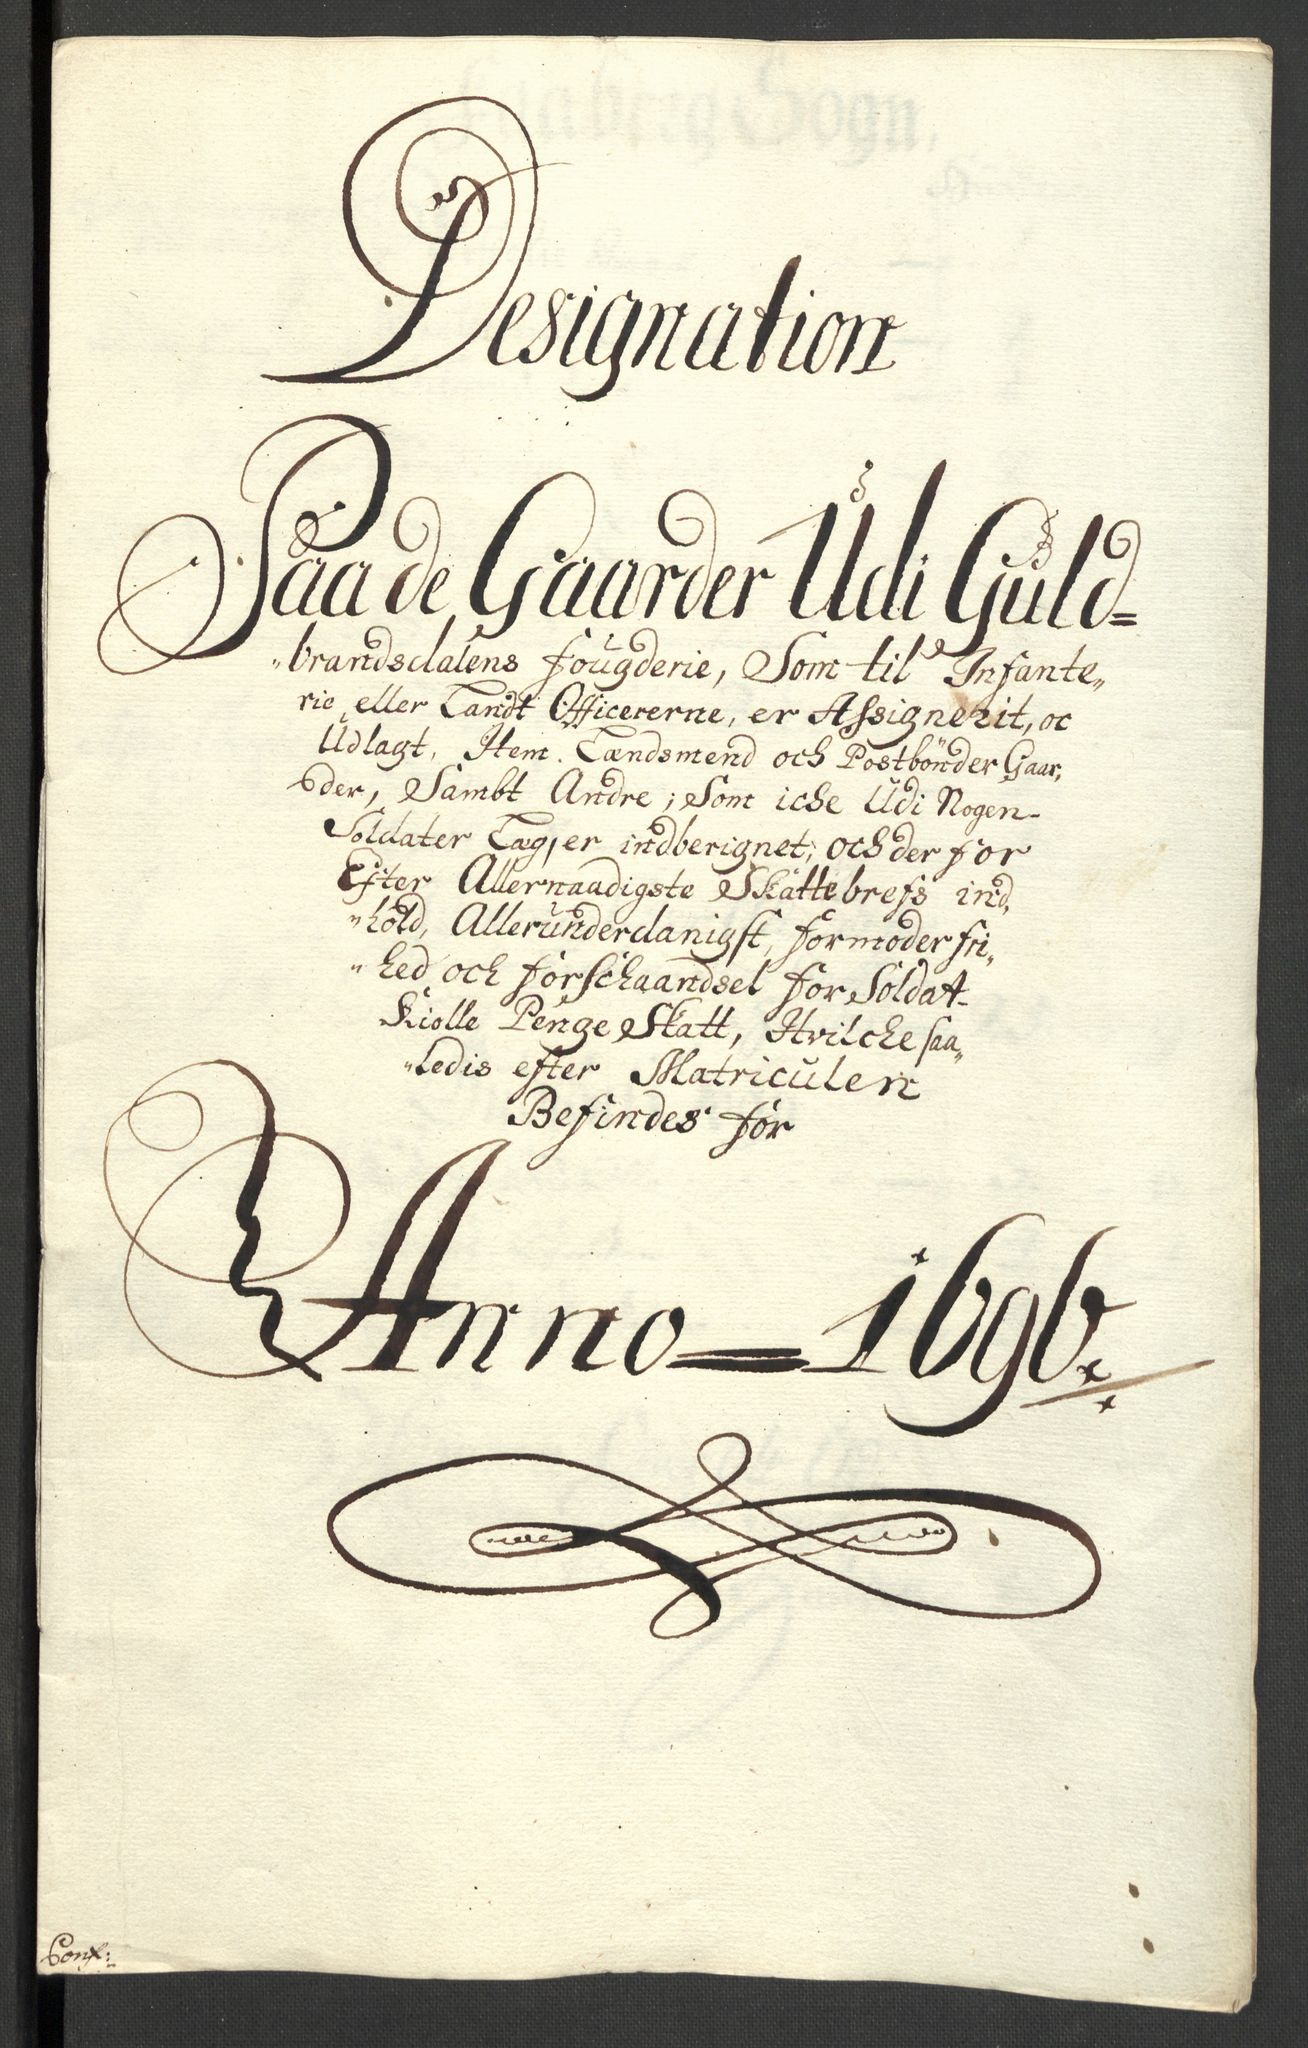 Designation
Paa de Gaarder Udi Guld=
„brandsdalens fougderie, Som til Infante„
rie, eller Landt Officererne, er Assignerit, oc
Udlagt, Item. Lændsmend och Postbønder Gaar,
der, Sambt Andre; Som iche Udi Nogen-
Soldater Læg, er indberignet, och der for
Efter Allernaadigste Skattebrefs ind,
„hold, Allerunderdanigst, formoder fri„
„hed och forschaandsel for Soldat-
Kiolle Penge Skatt, Hvilche saa„
„ledis efter Matriculen
Befindes for
Anno = 1696.